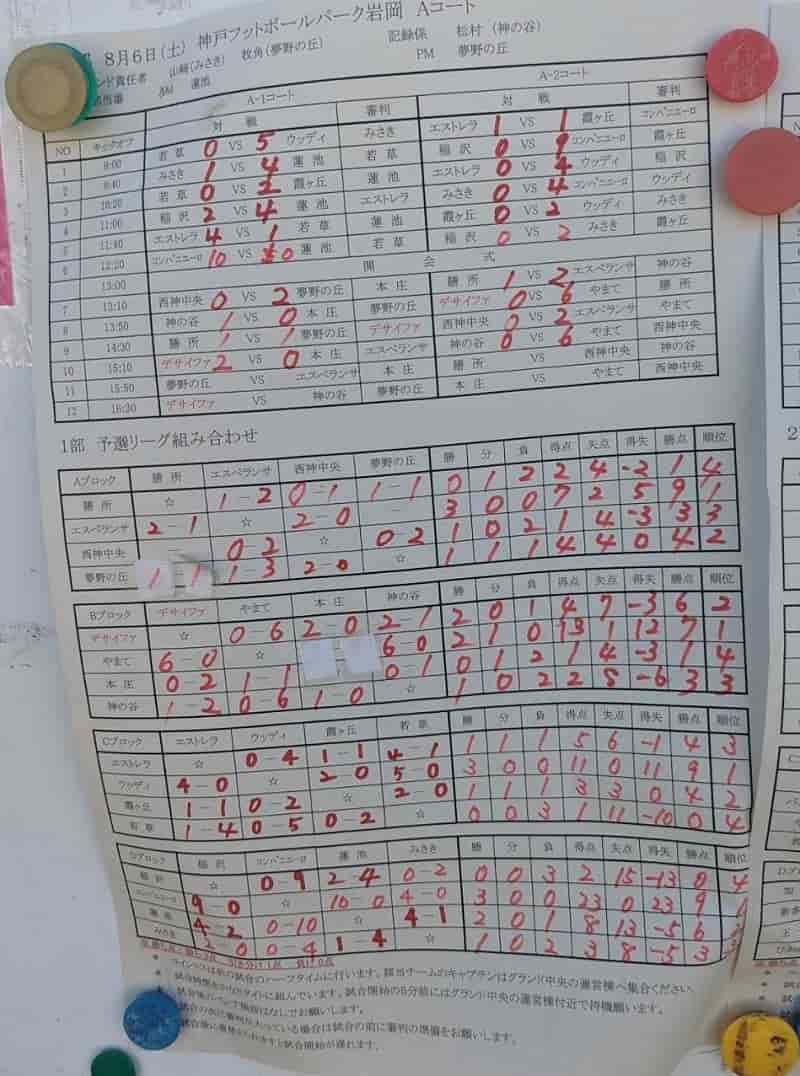 8月6日(土) 神戸フットボールパーク岩岡 Aコート
ンド責任者 山﨑(みさき) 枚角(夢野の丘) 記録係 松村 (神の谷)
蓮池 PM 夢野の丘
A-1コート A-2コート
NO キックオフ 対 戦 審判 対 戦 審判
1 9:00 若草 0 VS 5 ウッディ みさき エストレラ 1 VS 1 霞ヶ丘 コンパニエーロ
2 9:40 みさき 1 VS 4 蓮池 若草 稲沢 0 VS 9 コンパニエーロ 稲沢
3 10:20 若草 0 VS 2 霞ヶ丘 蓮池 エストレラ 0 VS 4 ウッディ
4 11:00 稲沢 2 VS 4 蓮池 エストレラ みさき 0 VS 4 コンパニエーロ ウッディ
5 11:40 エストレラ 4 VS 1 若草 蓮池 霞ヶ丘 0 VS 2 ウッディ みさき
6 12:20 コンパニエーロ 10 VS 0 蓮池 若草 稲沢 0 VS 2 みさき 霞ヶ丘
13:00 開 会 式
7 13:10 西神中央 0 VS 2 夢野の丘 本庄 勝所 1 VS 2 エスペランサ 神の谷
8 13:50 神の谷 1 VS 0 本庄 夢野の丘 デサイファ 0 VS 6 やまて 勝所
9 14:30 勝所 1 VS 1 夢野の丘 デサイファ 西神中央 0 VS 2 エスペランサ やまて
10 15:10 デサイファ 2 VS 0 本庄 エスペランサ 神の谷 0 VS 6 やまて 西神中央
11 15:50 夢野の丘 VS エスペランサ 本庄 勝所 VS 西神中央 神の谷
12 16:30 デサイファ VS 神の谷 夢野の丘 本庄 VS やまて 西神中央
1部 予選リーグ組み合わせ
Aブロック 勝所 エスペランサ 西神中央 夢野の丘 勝 分 負 得点 失点 得失 勝点 順位
勝所 ☆ 1-2 0-1 1-1 0 1 2 2 4 -2 1 4
エスペランサ 2-1 ☆ 2-0 - 3 0 0 7 2 5 9 1
西神中央 0 2 ☆ 0-2 1 0 2 1 4 -3 3 3
夢野の丘 1 1 1-3 2-0 ☆ 1 1 1 4 4 0 4 2
Bブロック デサイファ やまて 本庄 神の谷 勝 分 負 得点 失点 得失 勝点 順位
デサイファ ☆ 0-6 2-0 2-1 2 0 1 4 7 -3 6 2
やまて 6-0 ☆ 6-0 2 1 0 13 1 12 7 1
本庄 0-2 1-1 0-1 0 1 2 1 4 -3 1 4
神の谷 1-2 0-6 1-0 ☆ 1 0 2 2 8 -6 3 3
Cブロック エストレラ ウッディ 霞ヶ丘 若草 勝 分 負 得点 失点 得失 勝点 順位
エストレラ ☆ 0-4 1-1 4-1 1 1 1 5 6 -1 4 3
ウッディ 4-0 ☆ 2 0 5-0 3 0 0 11 0 11 9 1
霞ヶ丘 1-1 0-2 ☆ 2-0 1 1 1 3 3 0 4 2
若草 1-4 0-5 0-2 ☆ 0 0 3 1 11 -10 0 4
Dブロック 稲沢 コンパニエーロ 蓮池 みさき 勝 分 負 得点 失点 得失 勝点 順位
稲沢 ☆ 0-9 2-4 0-2 0 0 3 2 15 -13 0 4
コンパニエーロ 9-0 ☆ 10-0 4-0 3 0 0 23 0 23 9
蓮池 4-2 0-10 ☆ 4-1 2 0 1 8 13 -5 6
みさき 2-0 0-4 1-4 ☆ 1 0 2 3 8 -5 3
※勝ち点・勝ち3点 引き分け1点 負け0点
* コイントスは前の試合のハーフタイムに行います。該当チームのキャプテンはグランド中央の運営棟へ集合ください。
* 試合時間をかなりタイトに組んでいます。試合開始の5分前にはグランド中央の運営棟付近で待機願います。
試合後のベンチ挨拶はなしでお願いします。
試合の次に審判が入っている場合は試合の前に審判の準備をお願いします。
試合開始が遅れます。